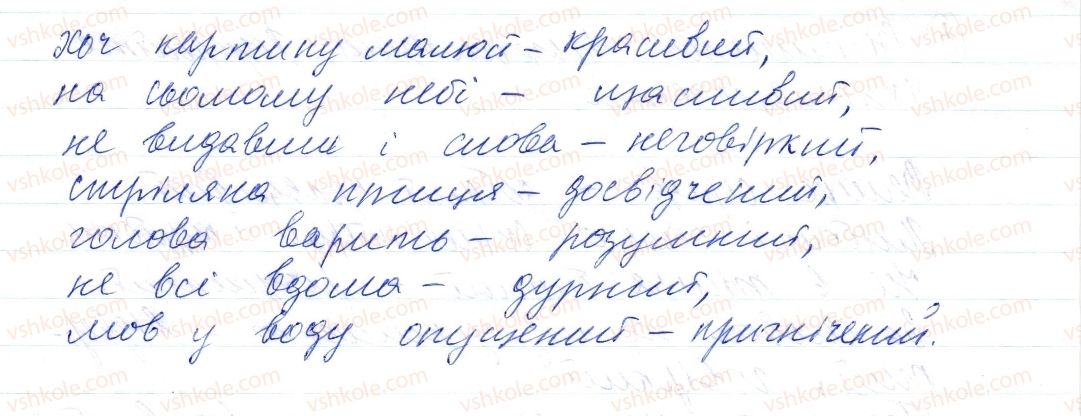 хоч картину малюй – красивий,
на сьомому небі – щасливий,
не видавши і слова – неговіркий,
стріляна птиця – досвідчений,
голова варить – розумний,
не всі вдома – дурний,
мов у воду опущений – пригнічений.